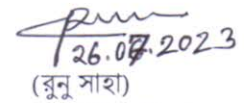 26.07.2023
(রুনু সাহা)